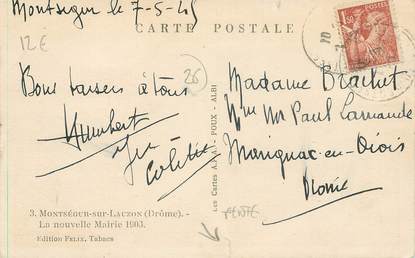 Montségur le 7-5-45
CARTE POSTALE
12€
26
Bons baisers à tous
Humbert
Colette
Madame Brachet
Mr Paul Lamande
Marignac-en-Diois
Drôme
Les Cartes A.P.A. - POUX - ALBI
VENTE
3. MONTSÉGUR-SUR-LAUZON (Drôme). -
La nouvelle Mairie 1903.
Edition FELIX, Tabacs